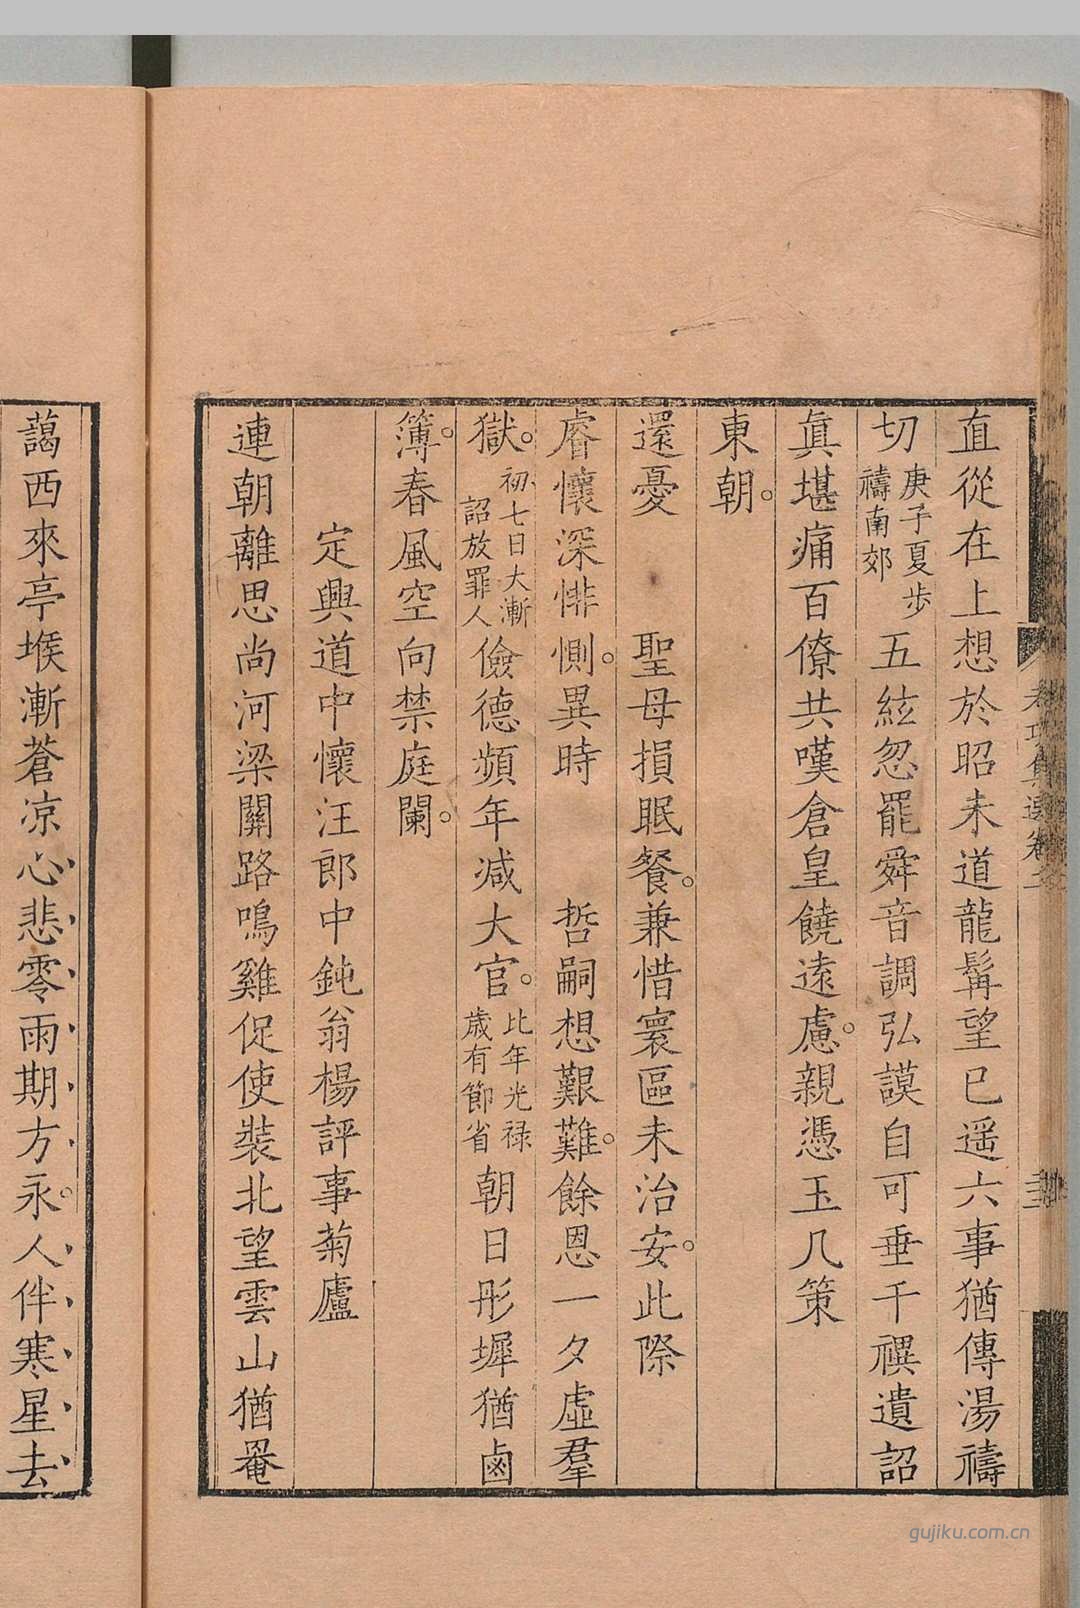 直從在上想於昭未道龍髯望已遥六事猶傳湯禱
切庚子夏步禱南郊五絃忽罷舜音調弘謨自可垂千禩遺詔
眞堪痛百僚共嘆倉皇饒遠慮。親憑玉几策
東朝。
還憂　聖母損眠餐。兼惜寰區未治安。此際
睿懷深悱惻。異時　哲嗣想艱難。餘恩一夕虛羣
獄。初七日大漸詔放罪人儉德頻年減大官。比年光禄歲有節省朝日彤墀猶鹵
簿。春風空向禁庭闌。
定興道中懷汪郎中鈍翁楊評事菊廬
連朝離思尚河梁關路鳴雞促使裝北望雲山猶罨
藹西來亭堠漸蒼凉心悲零雨期方永。人伴寒星去
gujiku.com.cn